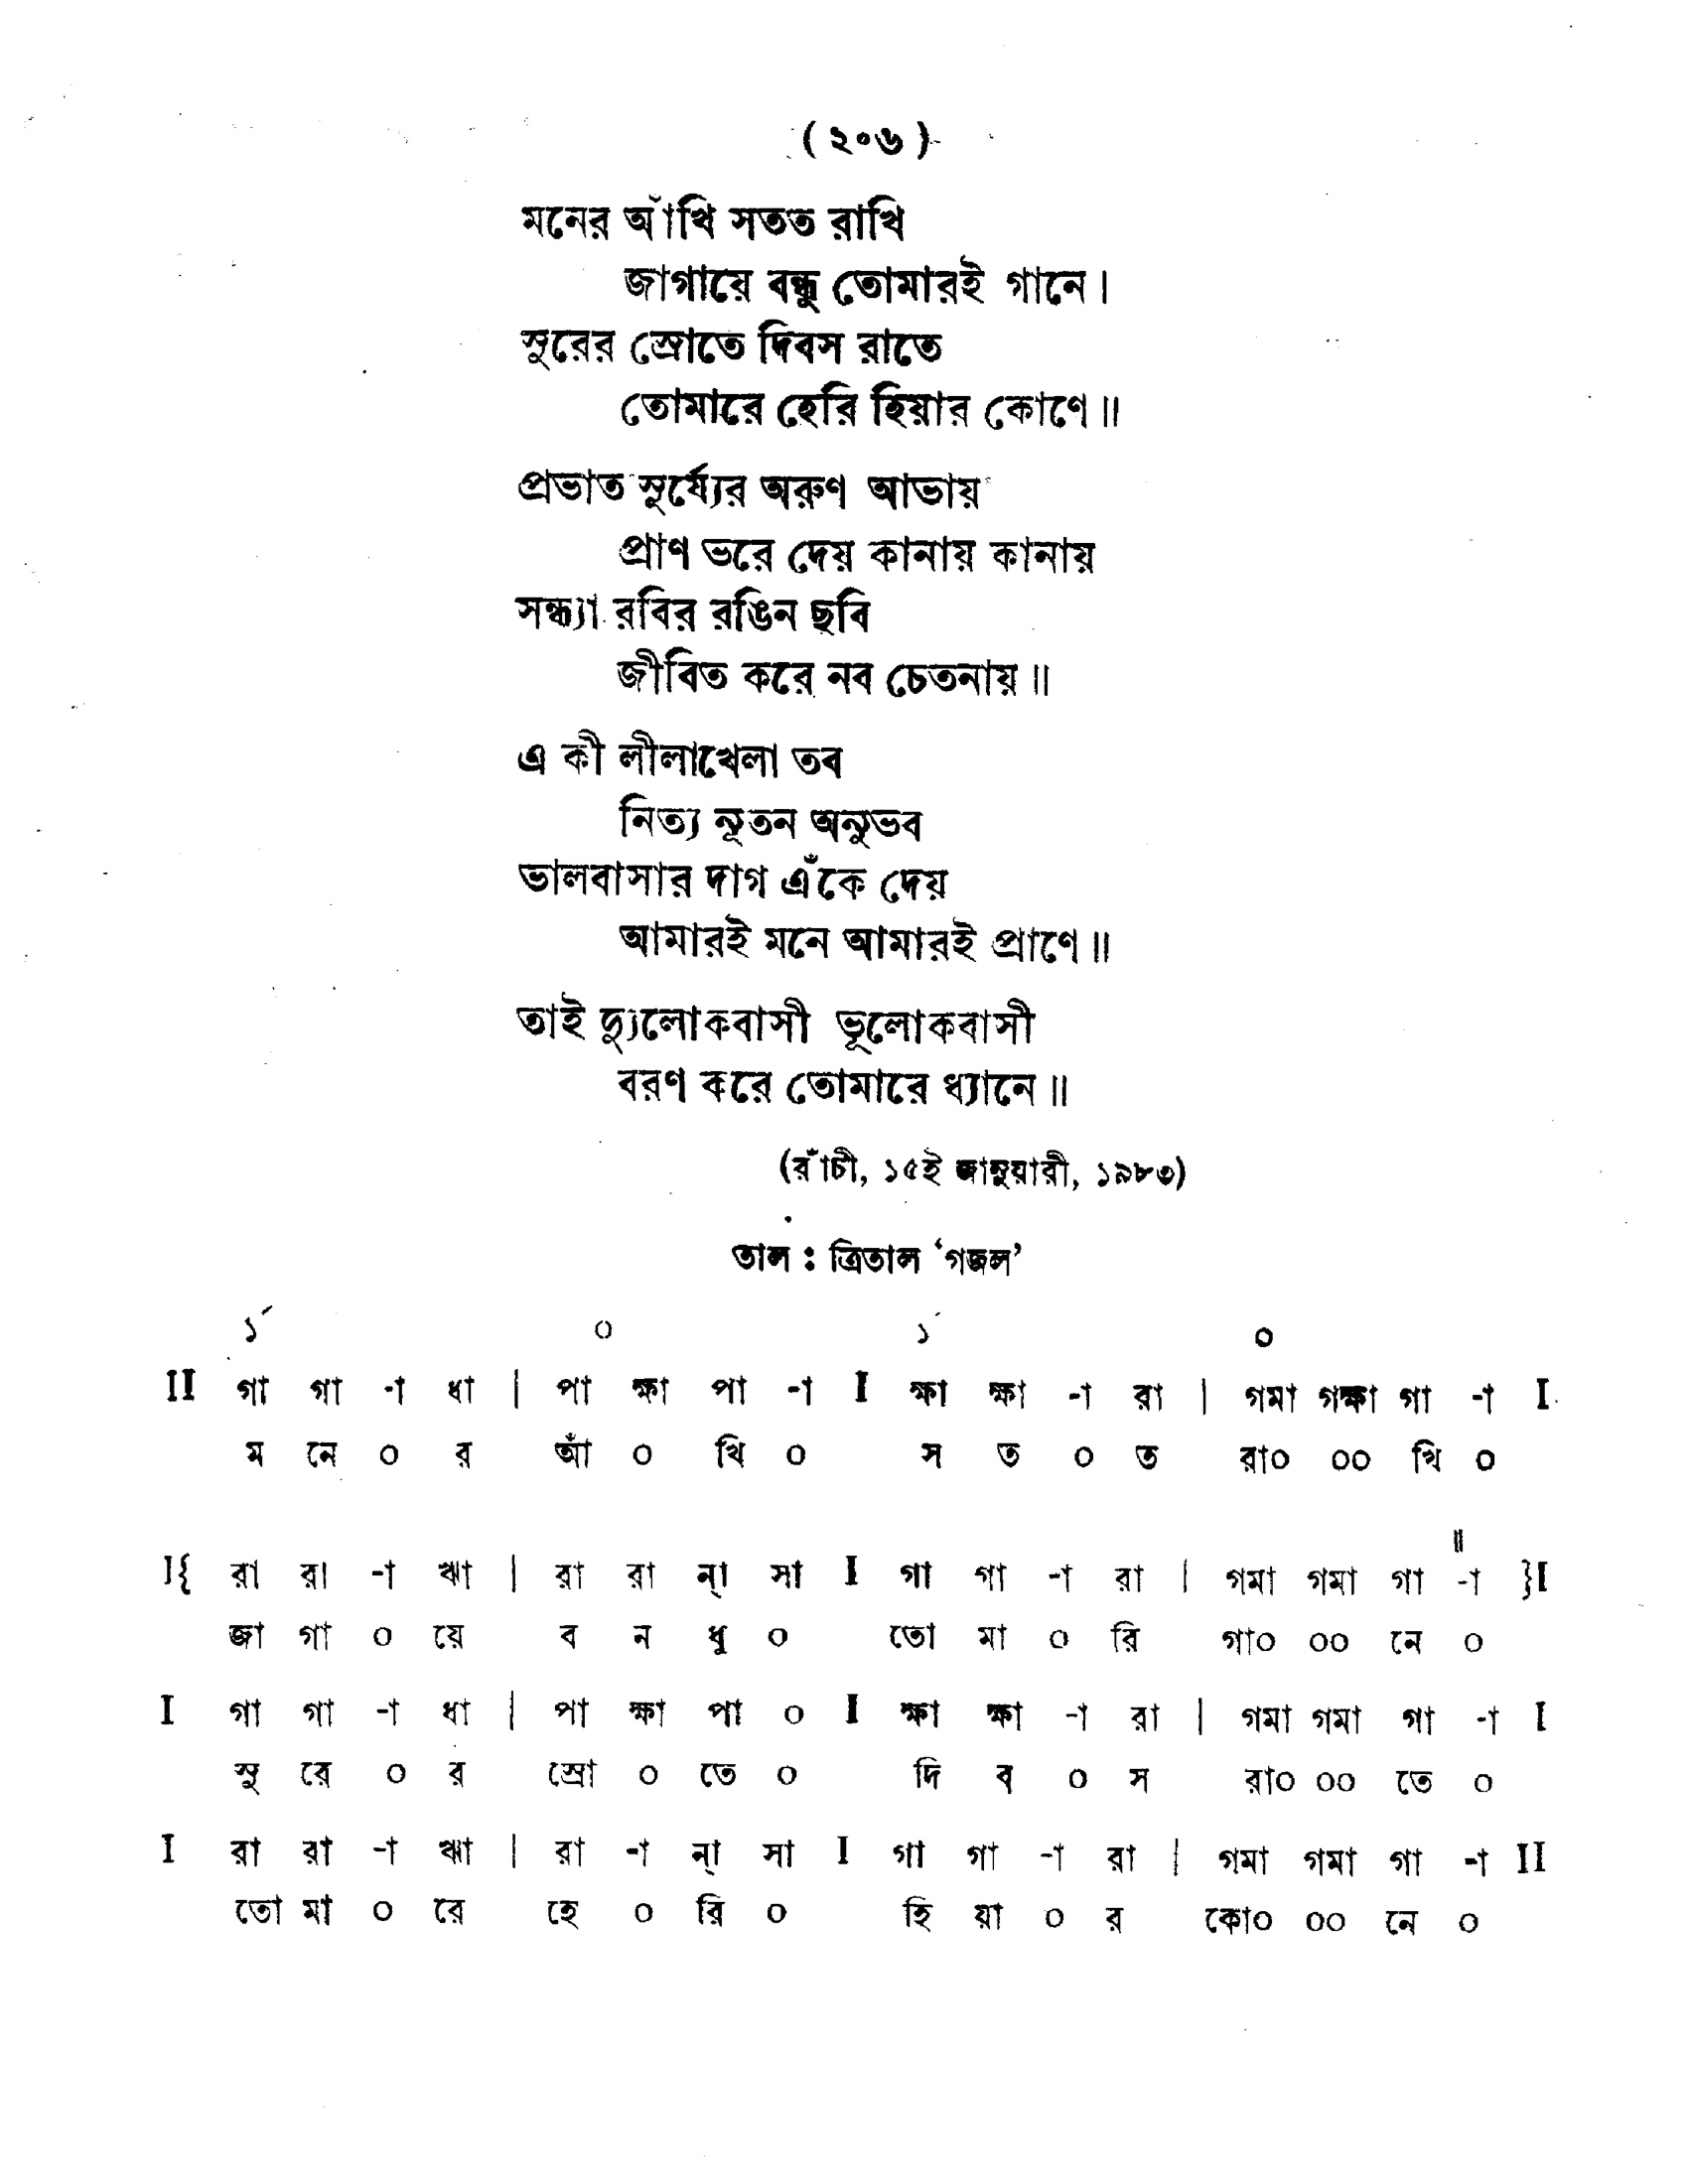 ( ২০৬ )
মনের আঁখি সতত রাখি
জাগায়ে বন্ধু তোমারই গানে।
সুরের স্রোতে দিবস রাতে
তোমারে হেরি হিয়ার কোণে॥
প্রভাত সূর্য্যের অরুণ আভায়
প্রাণ ভরে দেয় কানায় কানায়
সন্ধ্যা রবির রঙিন ছবি
জীবিত করে নব চেতনায়॥
এ কী লীলাখেলা তব
নিত্য নূতন অনুভব
ভালবাসার দাগ এঁকে দেয়
আমারই মনে আমারই প্রাণে॥
তাই দ্যুলোকবাসী ভূলোকবাসী
বরণ করে তোমারে ধ্যানে॥
(রাঁচী, ১৫ই জানুয়ারী, ১৯৮৩)
তাল : ত্রিতাল ‘গজল’
১´ ০ ১´ ০
II গা গা -া ধা | পা ক্ষা পা -া I ক্ষা ক্ষা -া রা | গমা গক্ষা গা -া I
ম নে ০ র আঁ ০ খি ০ স ত ০ ত রা০ ০০ খি ০
॥
I{ রা রা -া ঋা | রা রা ন্া সা I গা গা -া রা | গমা গমা গা -া }I
জা গা ০ য়ে ব ন ধু ০ তো মা ০ রি গা০ ০০ নে ০
I গা গা -া ধা | পা ক্ষা পা ০ I ক্ষা ক্ষা -া রা | গমা গমা গা -া I
সু রে ০ র স্রো ০ তে ০ দি ব ০ স রা০ ০০ তে ০
I রা রা -া ঋা | রা -া ন্া সা I গা গা -া রা | গমা গমা গা -া II
তো মা ০ রে হে ০ রি ০ হি য়া ০ র কো০ ০০ নে ০